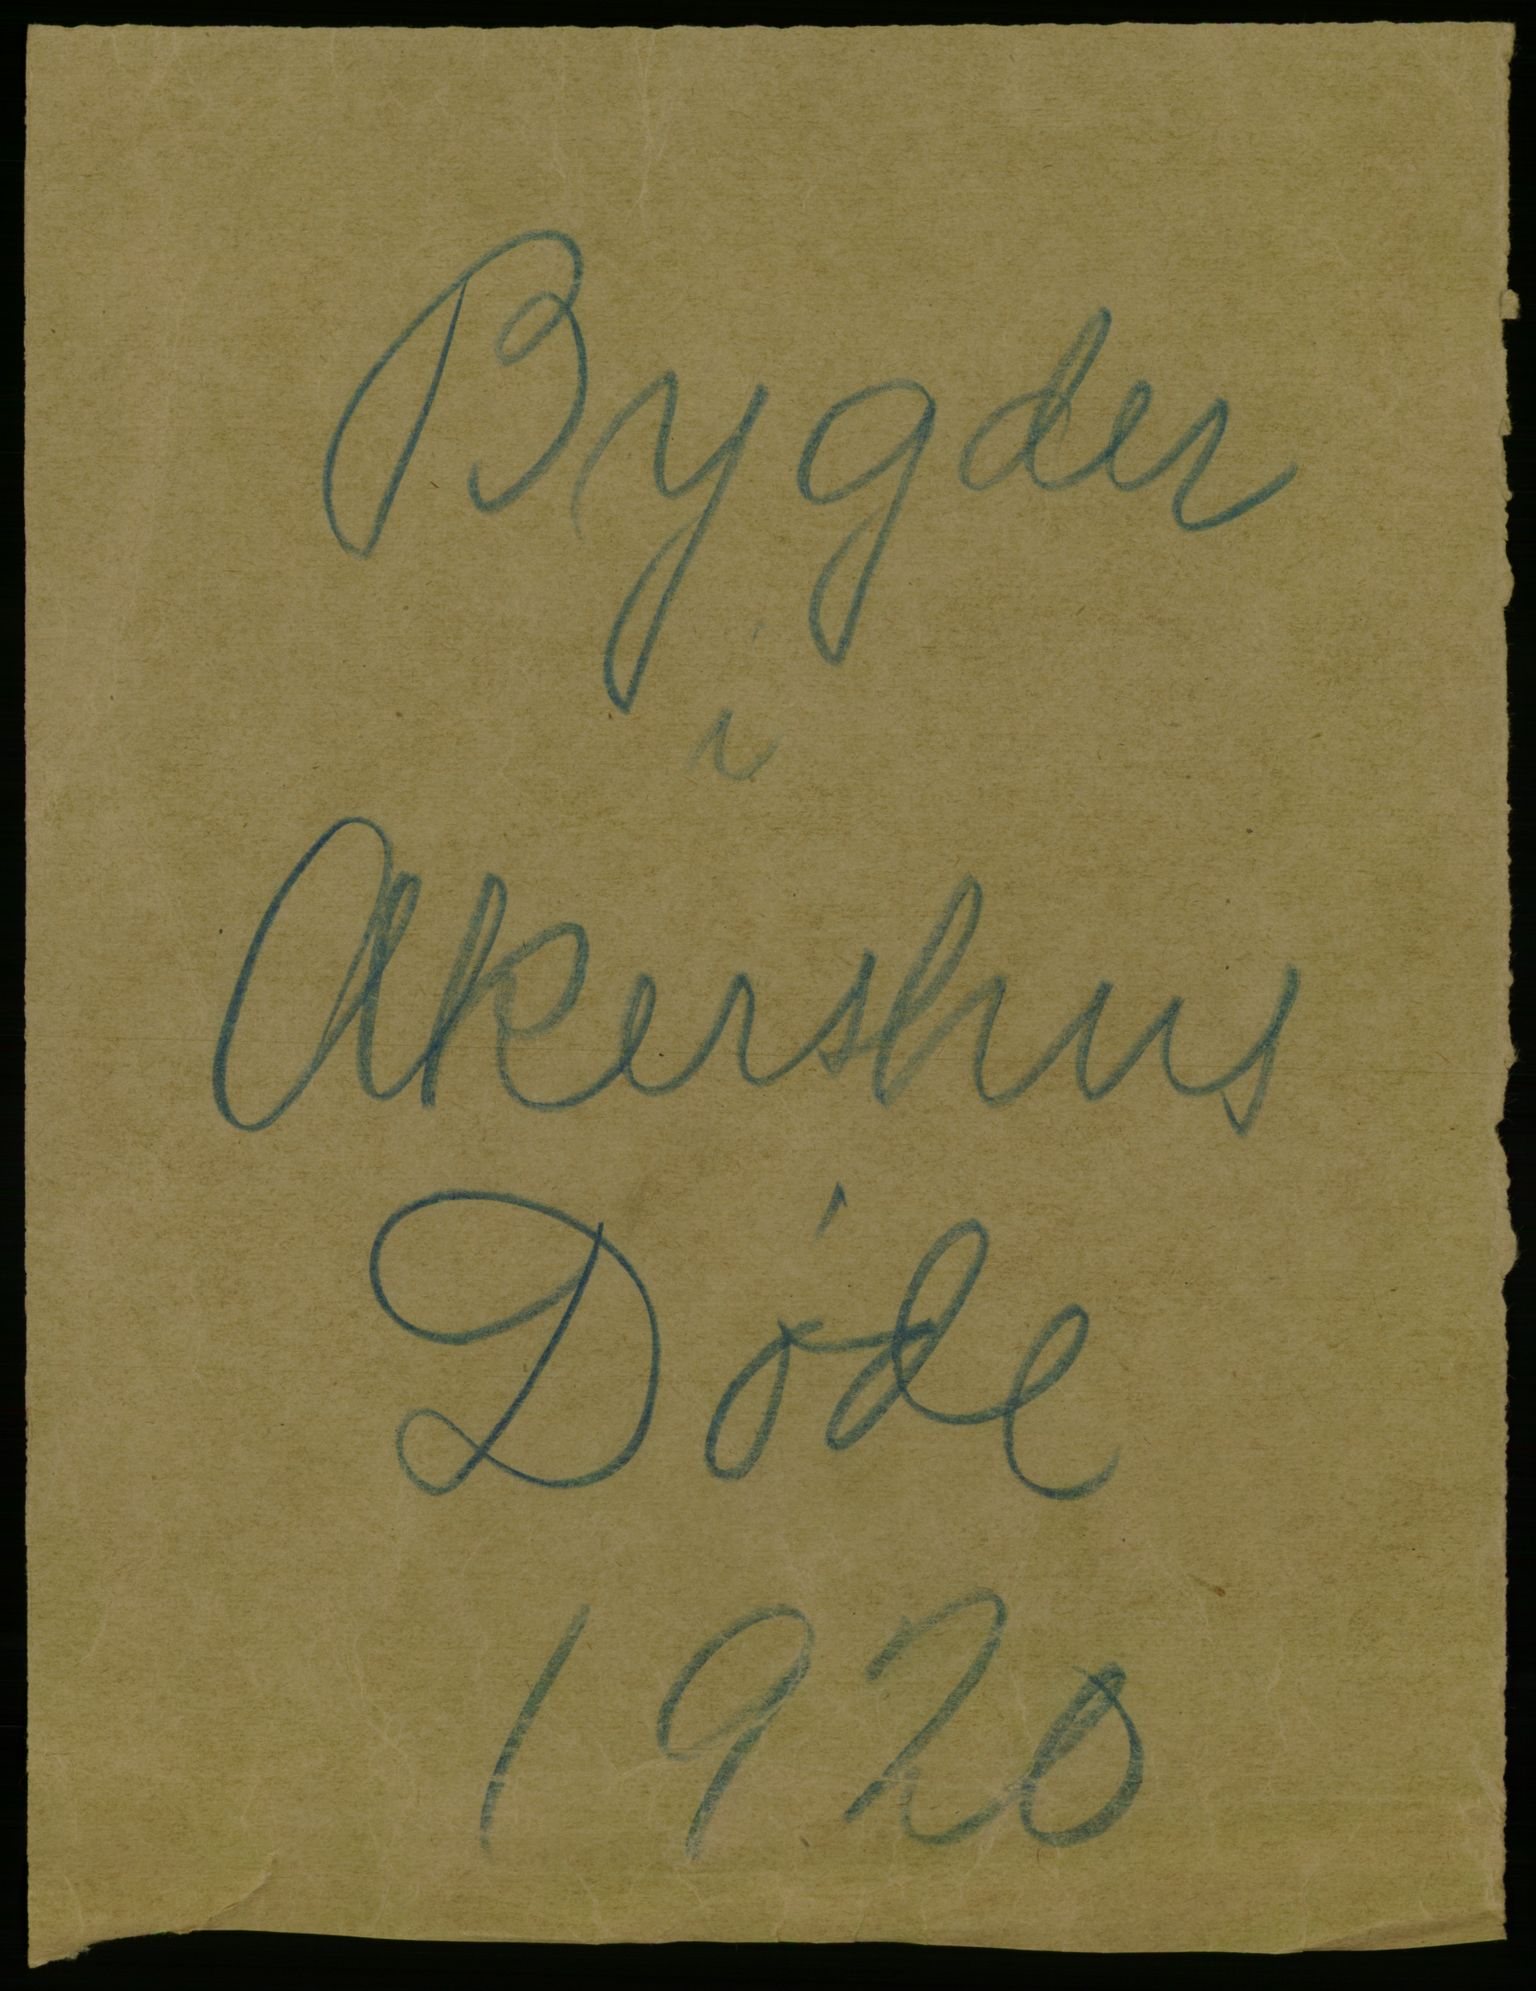 Bygder
i
Akershus
Døde
1920